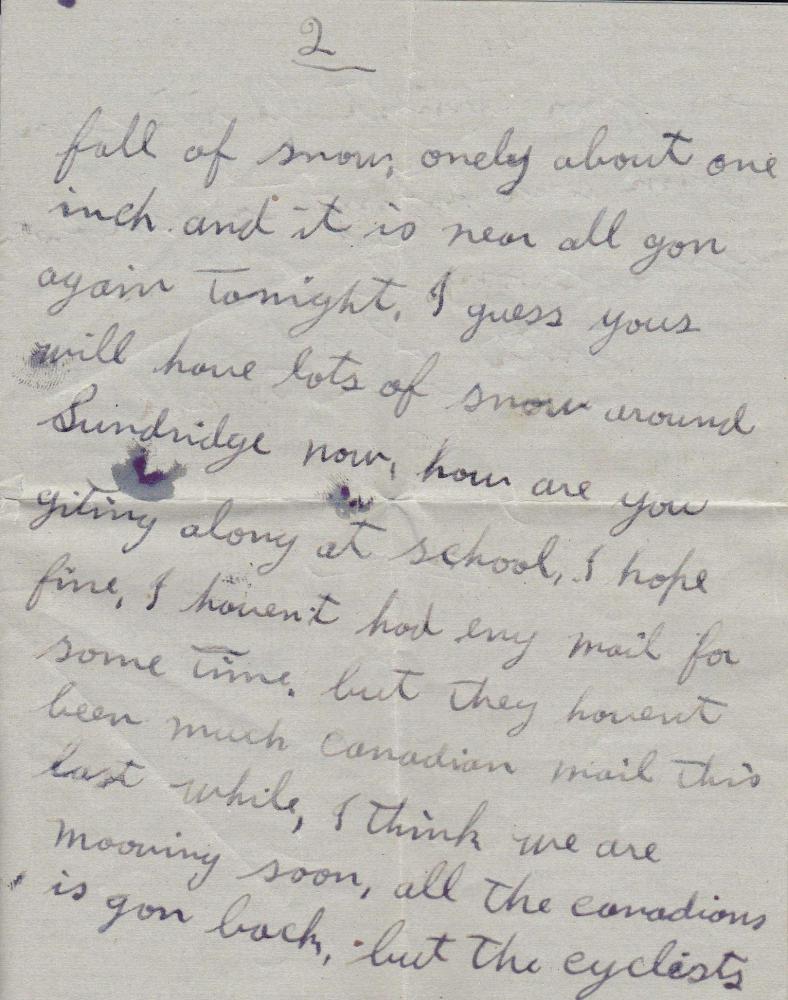 2
fall of snow, onely about one
inch. and it is near all gon
again tonight. I guess yous
will have lots of snow around
Sundridge now, how are you
giting along at school, I hope
fine, I haven't had eny mail for
some time. but they havent
been much canadian mail this
last while, I think we are
mooving soon, all the canadians
is gon back, but the cyclists